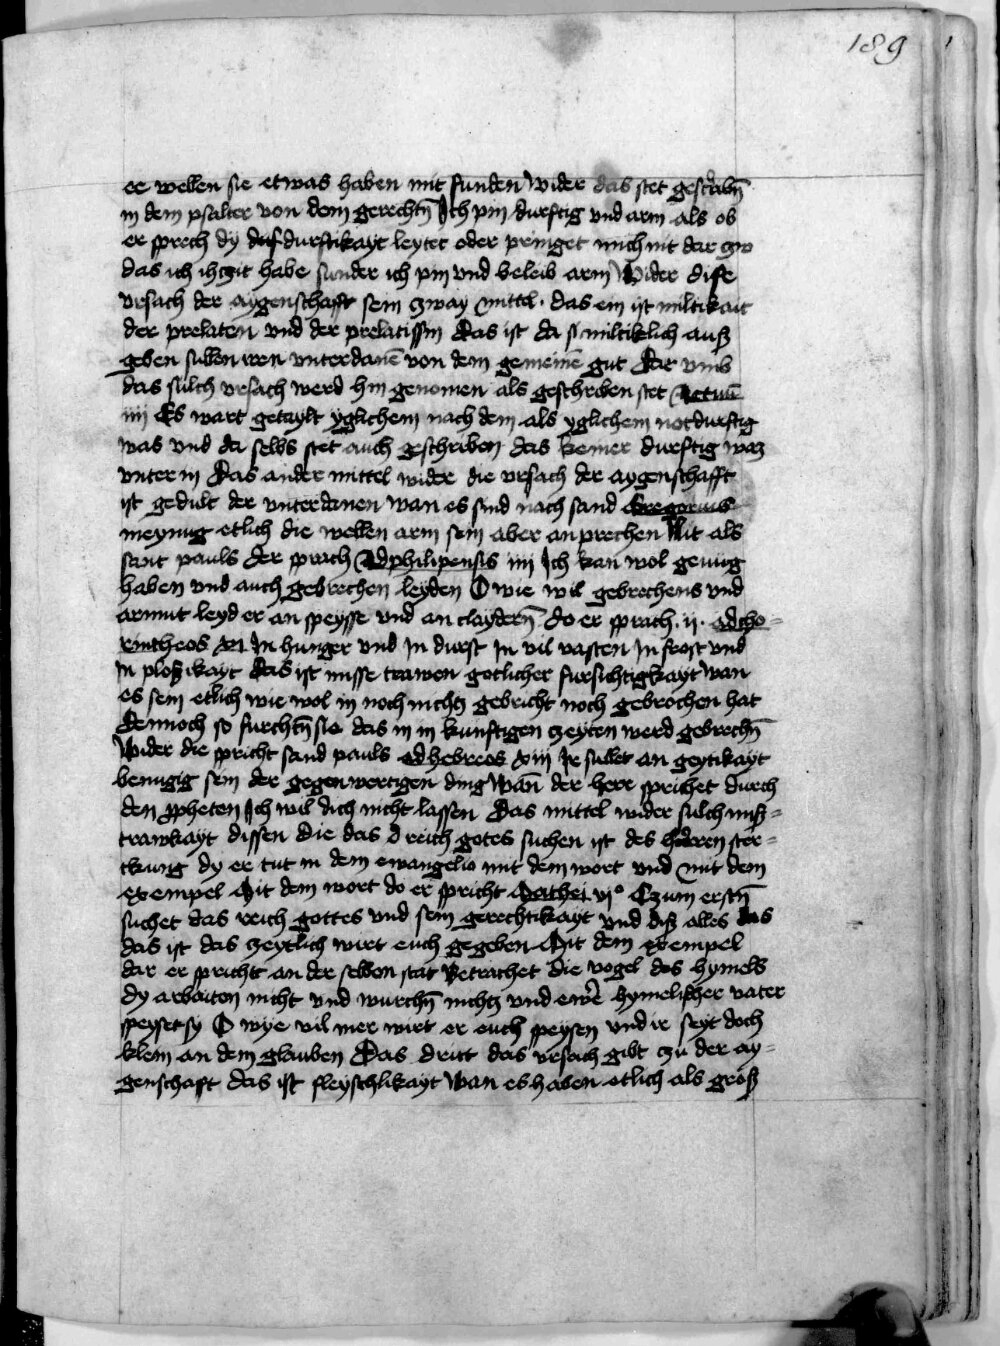 189
ee wellen sie etwas haben mit sunden Wider das stet geschrabn̄
in dem psalter von dem gerechtn̄ Ich pin durftig vnd arm als ob
er sprech dy durftikayt leytet oder pringet mich nit dar zw
das ich ihczit habe sunder ich pin vnd beleib arm Wider dise
vrsach der aygenschafft sein czway mittel · das ein ist miltikait
der prelaten vnd der prelatissin Das ist da si miltiklich auß
geben sullen iren vnterdanē von dem gemeinē gut Dar vmb
das sulch vrsach werd hin genomen als geschriben stet Actuū
iiij Es wart getaylt yglichem nach dem als yglichem notdurftig
was vnd da selbs stet auch geschriben das keiner durftig waz
vnter in Das ander mittel wider die vrsach der aygenschafft
ist gedult der vnterdanen wan es sind nach sand Gregorius
meynug etlich die wellen arm sein aber an prechen Nit als
sant pauls der sprach Ad philipensis iiij Ich kan wol genüg
haben vnd auch gebrechen leyden O wie vil gebrechens vnd
armut leyd er an speysse vnd an claydern̄ do er sprach · ij · ad cho=
rintheos xi In hunger vnd In durst In vil vasten In frost vnd
In ploßikayt Das ist misse trawen gotlicher fursichtigkayt wan
es sein etlich wie wol in noch nichcz gebricht noch gebrochen hat
Dennoch so furchtn̄ sie das in in kunftigen czeyten werd gebrechn̄
Wider die spricht sand pauls ad hebreos xiij Ir sullet an geytikayt
benugig sein der gegenwertigen ding Wan̄ der herr sprichet durch
den ꝓpheten Ich wil dich nicht lassen Das mittel wider sulch miß=
trawkayt dissen die das d reich gotes suchen ist des herren ster=
ckung dy er tut in dem ewangelio mit dem wort vnd mit dem
exempel Mit dem wort do er spricht Mathei vi° Czum erstn̄
suchet das reich gottes vnd sein gerechtikayt vnd diß alles das
das ist das zeytlich wirt euch gegeben Mit dem exempel
dar er spricht an der selben stat Betrachet die vogel des hymels
dy arbaiten nicht vnd wurchn̄ nichcz vnd ewr̄ hymelischer vater
speyset sy O wye vil mer wirt er euch speysen vnd ir seyt doch
klein an dem glauben Das dritt das vrsach gibt zu der ay=
genschaft das ist fleyschlikayt Wan es haben etlich als groß